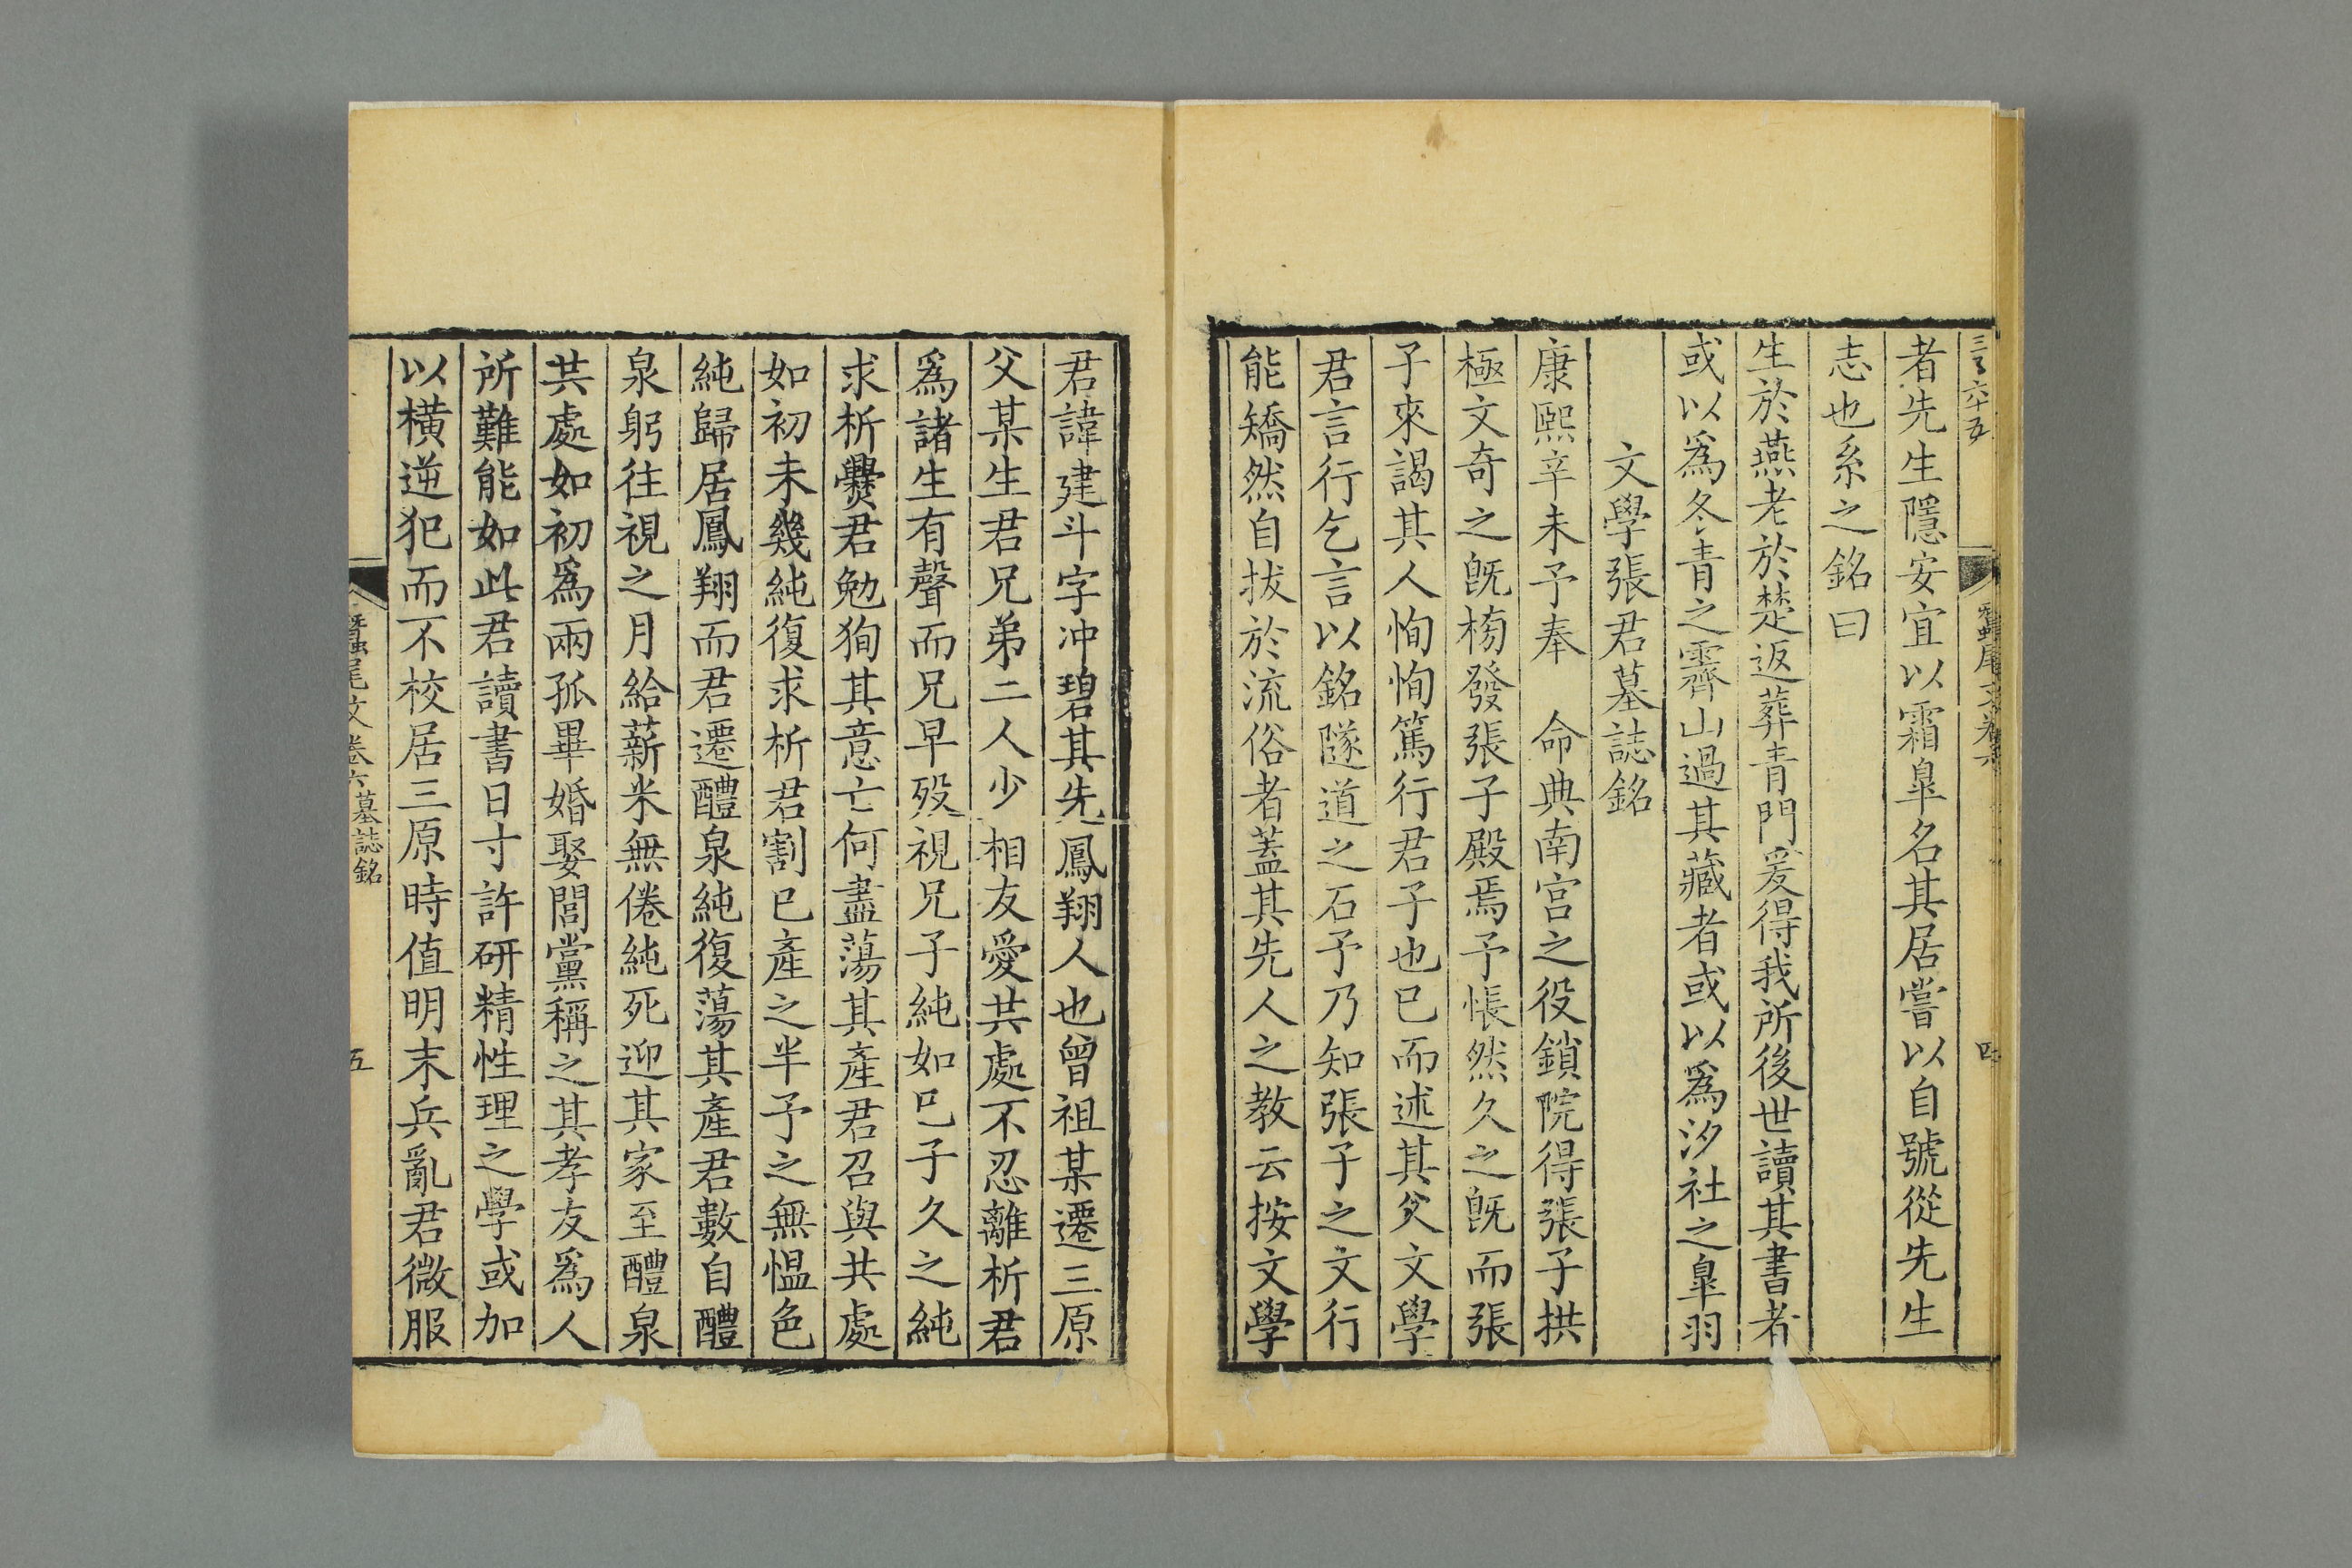 者先生隱安宜以霜臯名其居嘗以自號從先生
志也系之銘曰
生於燕老於楚返葬青門爰得我所後世讀其書者
或以爲冬青之霽山過其藏者或以爲汐社之臯羽
文學張君墓誌銘
康熙辛未予奉 命典南宮之役鎖院得張子拱
極文奇之旣榜發張子殿焉予悵然久之旣而張
子來謁其人恂恂篤行君子也已而述其父文學
君言行乞言以銘隧道之石予乃知張子之文行
能矯然自拔於流俗者蓋其先人之教云按文學
君諱建斗字冲碧其先鳳翔人也曾祖某遷三原
父某生君兄弟二人少相友愛共處不忍離析君
爲諸生有聲而兄早歿視兄子純如已子久之純
求析爨君勉狥其意亡何盡蕩其產君召與共處
如初未幾純復求析君割已產之半予之無愠色
純歸居鳳翔而君遷醴泉純復蕩其產君數自醴
泉躬往視之月給薪米無倦純死迎其家至醴泉
共處如初爲兩孤畢婚娶閭黨稱之其孝友爲人
所難能如此君讀書日寸許研精性理之學或加
以橫逆犯而不校居三原時值明末兵亂君微服
蠶尾文卷六墓誌銘
五